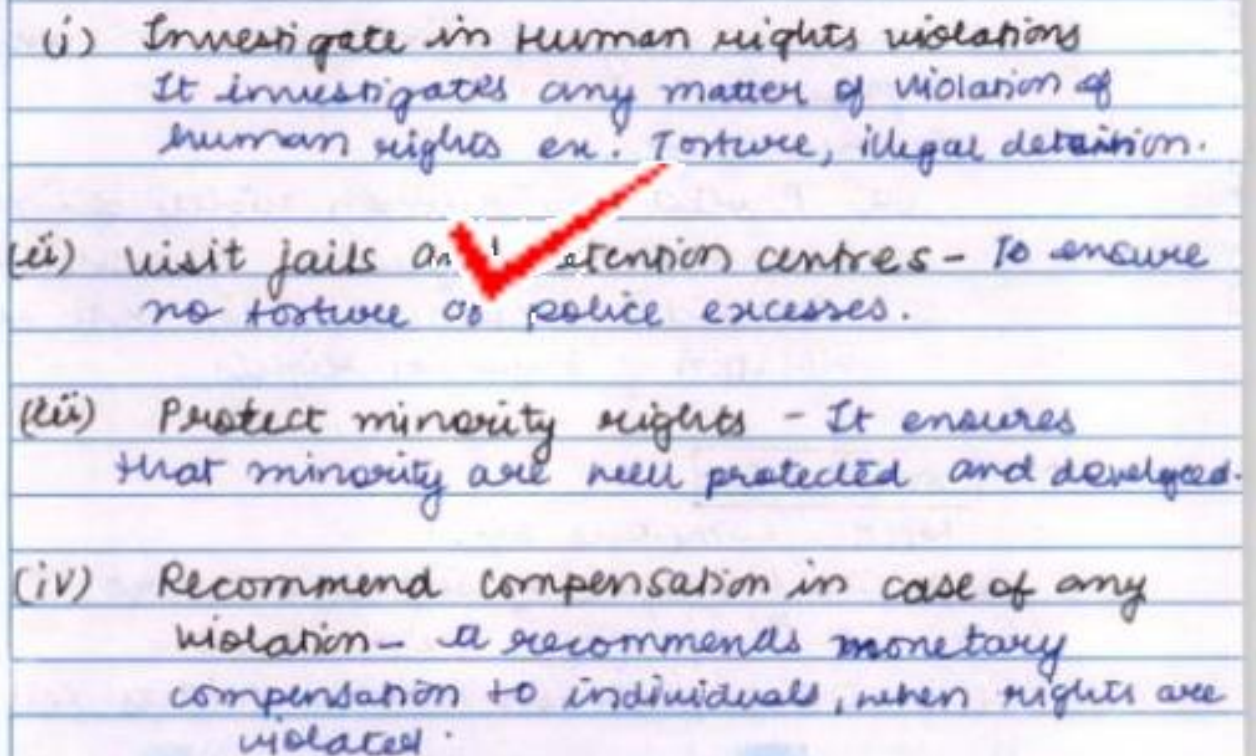 (i) Investigate in Human rights violations
It investigates any matter of violation of
human rights ex: Torture, illegal detention.
(ii) Visit jails and detention centres - To ensure
no torture or police excesses.
(iii) Protect minority rights - It ensures
that minority are well protected and developed.
(iv) Recommend compensation in case of any
violation - It recommends monetary
compensation to individuals, when rights are
violated.